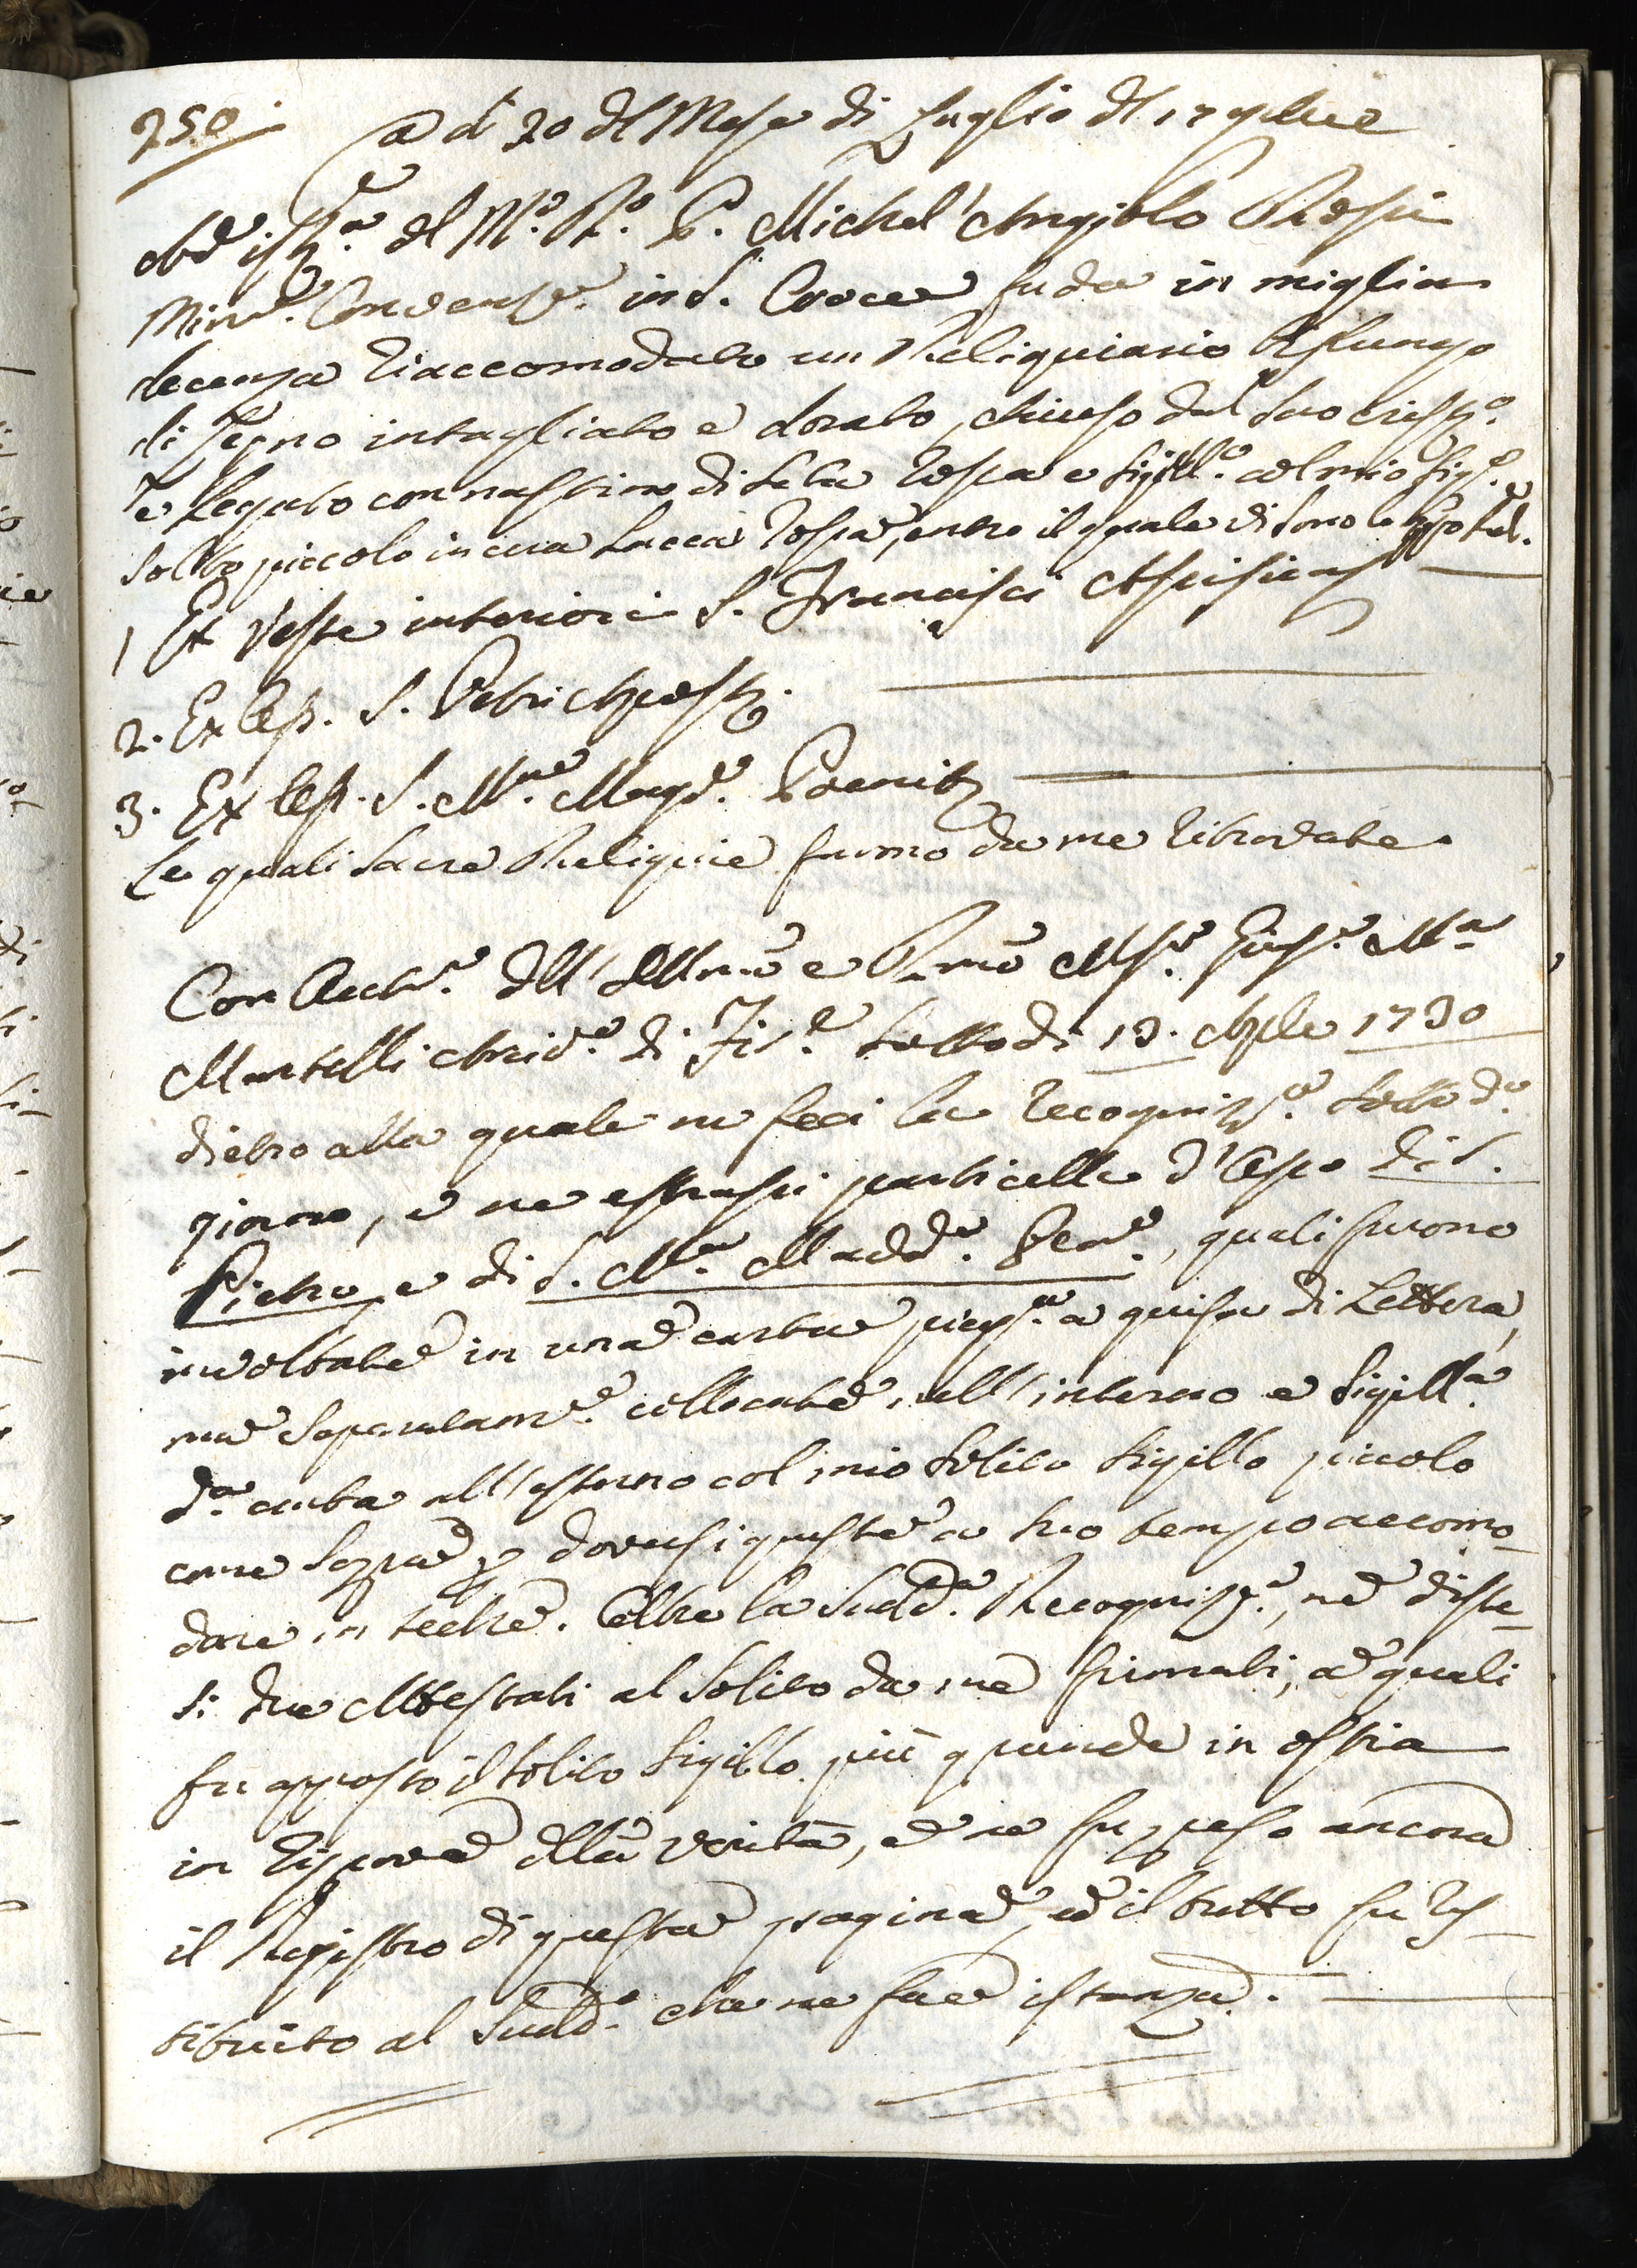 250
a dì 20 dl Mese di Luglio dl 17
Ad istza. del M.o R.o P. Michel'Angiolo
Minr.e Convent.e in S. Croce fu da in miglior
decenza riaccomodato un Reliquiario bislungo
di legno intagliato e dorato, chiuso dal suo crist.o
e legato con nastrino di seta rossa e sigill.o col mio sig.o
solito piccolo in cera Lacca rossa, entro il quale vi sono le
1 Ex Veste interiori S. Francisci Assisien
2. Ex Oss. S. Petri Apost.
3. Ex Oss. S. M.ae Magd.e Poenit.
Le quali Sacre Reliquie furno da me ritrovate
Con Aut.e dll'Illmo e Rmo Msr.e Gius.e M.a
Martelli Arciv.o di Fir.e sotto dì 13. Aple 1730
dietro alla quale ne feci la recogniz.e sotto d.o
giorno, e ne estrassi particelle d'Osso di S.
Pietro, e di S. M.a Madd.a Pen.e, quali furono
involtate in una carta pieg.a a guisa di Lettera,
ma separatam.e collocate nell'interno e sigill.a
d.a carta all'esterno col mio solito sigillo piccolo
come sopra p doversi queste a suo tempo accomo-
dare in teche. Oltre la sudd.a Recogniz.e, ne diste-
si due Attestati al solito da me firmati, a quali
fu apposto il solito sigillo più grande in ostia
in riprova dlla verità, e ne fu preso ancora
il Registro di questa pagina, ed il tutto fu res-
tituito al sudd.o che ne fece istanza.